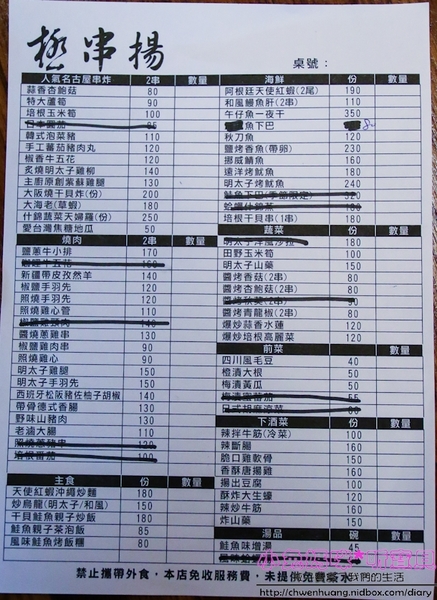 極串揚
桌號：
人氣名古屋串炸 2串 數量
蒜香杏鮑菇 80
特大蘆筍 90
培根玉米筍 100
日本圓茄
韓式泡菜豬 110
手工蕃茄豬肉丸 120
椒香牛五花 120
炙燒明太子雞柳 140
主廚原創紫蘇雞腿 130
大阪燒干貝炸(份) 200
大海老(草蝦) 180
什錦蔬菜天婦羅(份) 250
愛台灣焦糖地瓜 50
燒肉 2串 數量
鹽蔥牛小排 170
新疆帶皮孜然羊 140
椒鹽手羽先 120
照燒手羽先 120
照燒雞心管 110
椒鹽雞頸肉 140
醬燒蔥雞串 130
椒鹽雞肉串 90
照燒雞心 90
明太子雞腿 150
明太子手羽先 150
西班牙松阪豬佐柚子胡椒 140
帶骨德式香腸 130
野味山豬肉 130
老滷大腸 110
照燒蔥豬串
培根番茄 100
主食 份 數量
天使紅蝦沖繩炒麵 180
炒烏龍(明太子/和風) 150
干貝鮭魚親子炒飯 180
鮭魚親子茶泡飯 85
風味鮭魚烤飯糰 80
海鮮 份 數量
阿根廷天使紅蝦(2尾) 190
和風鰻魚肝(2串) 110
午仔魚一夜干 350
魚下巴
秋刀魚 120
鹽烤香魚(帶卵) 230
挪威鯖魚 160
遠洋烤魷魚 180
明太子烤魷魚 240
鮭魚下巴(季節限定)
培根干貝串(1串) 180
蔬菜 份 數量
明太子洋風沙拉 180
田野玉米筍 100
明太子山藥 150
醬烤香菇(2串) 80
醬烤杏鮑菇(2串) 80
醬烤秋葵(2串) 90
醬烤青龍椒(2串) 80
爆炒蒜香水蓮 120
爆炒培根高麗菜 120
前菜 份 數量
四川風毛豆 40
橙漬大根 50
梅漬黃瓜 50
梅漬蜜番茄 55
日式胡麻涼菜 60
下酒菜 份 數量
辣拌牛筋(冷菜) 100
辣斷腸 160
脆口雞軟骨 150
香酥唐揚雞 160
揚出豆腐 100
酥炸大生蠔 120
辣炒牛筋 160
炸山藥 150
湯品 碗 數量
鮭魚味增湯 45
禁止攜帶外食，本店免收服務費，未提供免費茶水
我們的生活
http://chwenhuang.nidbox.com/diary